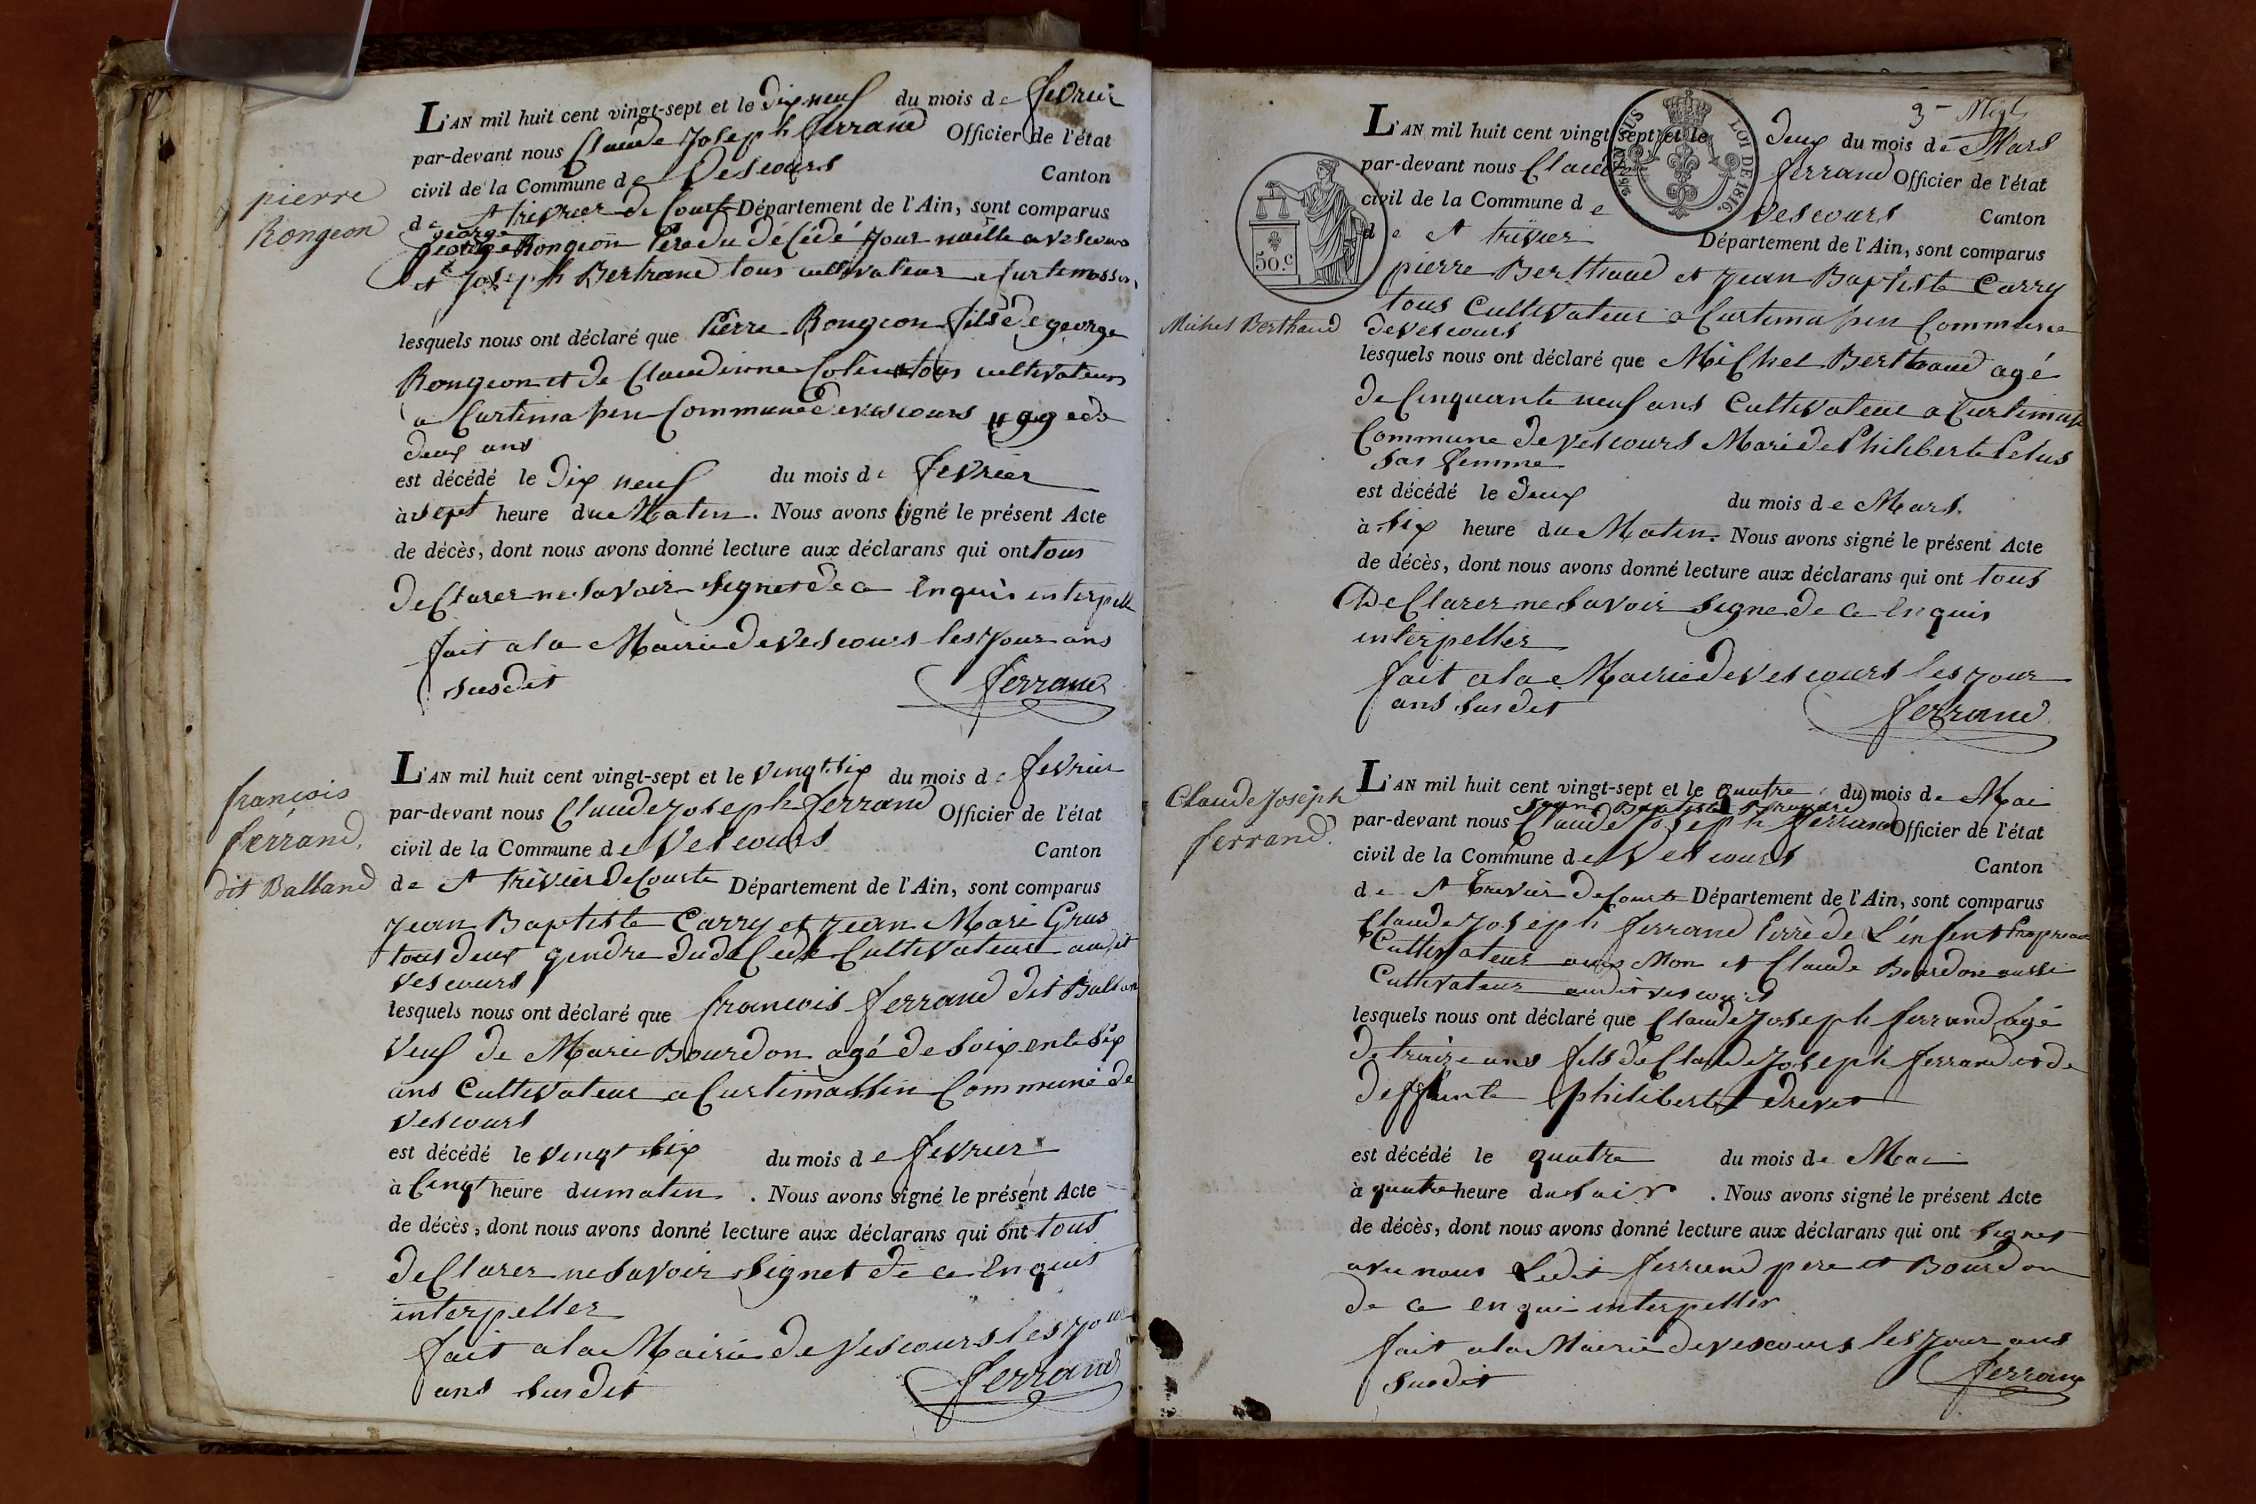 pierre
Rongeon
L'AN mil huit cent vingt-sept et le dix neuf du mois de fevrier
par-devant nous Claude Joseph ferrand Officier de l'état
civil de la Commune de Vescours Canton
de St trivier de Courte Département de l'Ain, sont comparus
george Rongeon Pere du décédé
et Joseph Bertrand tous cultivateur a
lesquels nous ont déclaré que Pierre Rongeon fils de george
Rongeon et de Claudinne Colin tous cultivateurs
a Curtimassin Commune de vescours agé de
deux ans
est décédé le dix neuf du mois de fevrier
à sept heure du Matin. Nous avons signé le présent Acte
de décès, dont nous avons donné lecture aux déclarans qui ont tous
declarer ne savoir signet de ce enquis interpelle
fait a la Mairie de Vescours les jour ans
susdit ferrand
françois
ferrand,
dit Balland
L'AN mil huit cent vingt-sept et le vingt six du mois de fevrier
par-devant nous Claude Joseph ferrand Officier de l'état
civil de la Commune de Vescours Canton
de St trivier de Courte Département de l'Ain, sont comparus
jean Baptiste Carry et jean Marie Gras
tous deux gendre du decede Cultivateur audit
Vescours
lesquels nous ont déclaré que francois ferrand dit
Veuf de Marie Bourdon agé de soixente six
ans Cultivateur a Curtimassin Commune de
Vescours
est décédé le vingt six du mois de fevrier
à Cinqt heure du matin. Nous avons signé le présent Acte
de décès, dont nous avons donné lecture aux déclarans qui ont tous
declarer ne savoir signet de ce enquis
interpeller
fait a la Mairie de Vescours les jour
ans susdit ferrand
Michel Berthaud
50.c
LOI DE 1816.
L'AN mil huit cent vingt-sept et le deux du mois de Mars
par-devant nous Claude ferrand Officier de l'état
civil de la Commune de Vescours Canton
de St trivier Département de l'Ain, sont comparus
pierre Berthaud et jean Baptiste Carry
tous Cultivateur a Curtimassin Commune
de vescours
lesquels nous ont déclaré que Michel Berthaud agé
de Cinquante neuf ans Cultivateur a
Commune de vescours Marie de Philiberte
sas femme
est décédé le deux du mois de Mars.
à six heure du Matin. Nous avons signé le présent Acte
de décès, dont nous avons donné lecture aux déclarans qui ont tous
declarer ne savoir signe de ce enquis
interpeller
fait a la Mairie de vescours les jour
ans susdit ferrand
Claude Joseph
ferrand.
L'AN mil huit cent vingt-sept et le quatre du mois de Mai
jean Baptiste
par-devant nous Claude Joseph ferrand Officier de l'état
civil de la Commune de Vescours Canton
de St trevier de Courte Département de l'Ain, sont comparus
Claude Joseph ferrand Perre de L'enfent
Cultivateur et Claude Bourdon aussi
Cultivateur audit vescours
lesquels nous ont déclaré que Claude Joseph ferrand agé
de treize ans fils de Claude Joseph ferrand et de
deffunte philiberte drevet
est décédé le quatre du mois de Mai
à quatre heure du soir. Nous avons signé le présent Acte
de décès, dont nous avons donné lecture aux déclarans qui ont signet
avec nous Ledit ferrand pere et Bourdon
de ce enqui interpeller
fait a la Mairie de vescours les jour ans
susdit ferrand